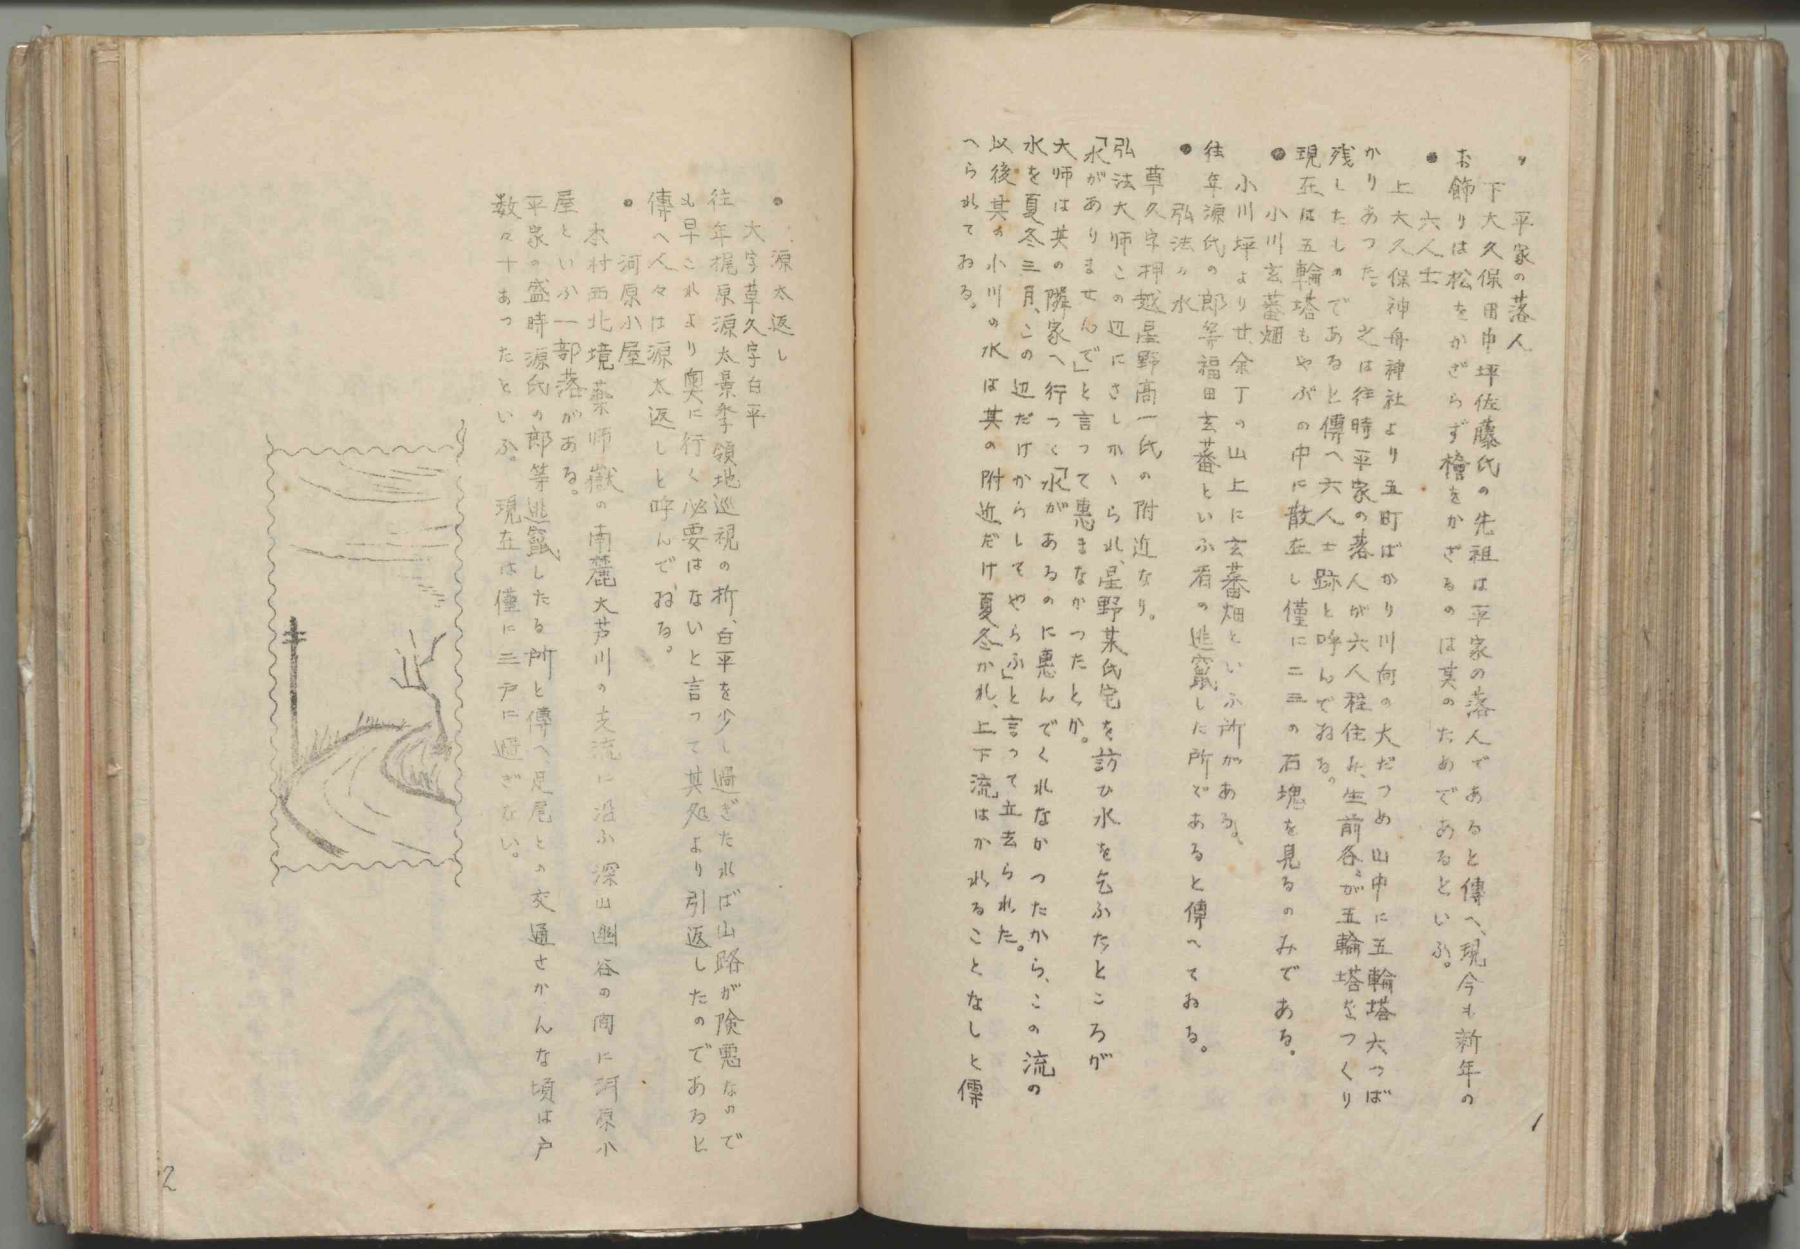 平家の落人
下大久保田中坪佐藤氏の先祖は平家の落人であると傳へ、現今も新年の
お飾りは松をかざらず檜をかざるのは其のためであるといふ。
● 六人士
上大久保神舟神社より五町ばかり川向の大だつめ山中に五輪塔六つば
かりあつた。之は往時平家の落人が六人程住み、生前各々が五輪塔をつくり
残したものであると傳へ六人士跡と呼んでおる。
現在は五輪塔もやぶの中に散在し僅に二三の石塊を見るのみである。
● 小川玄蕃畑
小川坪より廿余丁の山上に玄蕃畑といふ所がある。
往年源氏の郎等福田玄蕃といふ者の逃竄した所であると傳へておる。
● 弘法の水
草久字押越星野高一氏の附近なり。
弘法大師この辺にさしかゝられ、星野某氏宅を訪ひ水を乞ふたところが
「水がありませんで」と言って惠まなかつたとか。
大師は其の隣家へ行つて「水があるのに惠んでくれなかつたから、この流の
水を夏冬三月、この辺だけからしてやらふ」と言って立去られた。
以後其の小川の水は其の附近だけ夏冬かれ、上下流はかれることなしと傳
へられてゐる。
1
● 源太返し
大字草久字白平
往年梶原源太景季領地巡視の折、白平を少し過ぎたれば山路が険悪なので
も早これより奥に行く必要はないと言って其処より引返したのであると
傳へ人々は源太返しと呼んでおる。
● 河原小屋
本村西北境薬師嶽の南麓大芦川の支流に沿ふ深山幽谷の間に河原小
屋といふ一部落がある。
平家の盛時源氏の郎等逃竄したる所と傳へ足尾との交通さかんな頃は戸
数々十あったといふ。現在は僅に三戸に過ぎない。
2